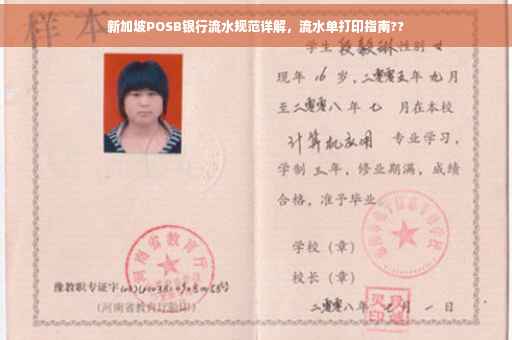 新加坡POSB银行流水规范详解，流水单打印指南??
样本
学生段毅琳性别女
现年16岁，二零零五年九月
至二零零八年七月在本校
计算机应用 专业学习，
学制三年，修业期满，成绩
合格，准予毕业
学校（章）
校长（章）
二零零八年七月一日
河南省教育厅
豫教职专证字
（河南省教育厅验印）